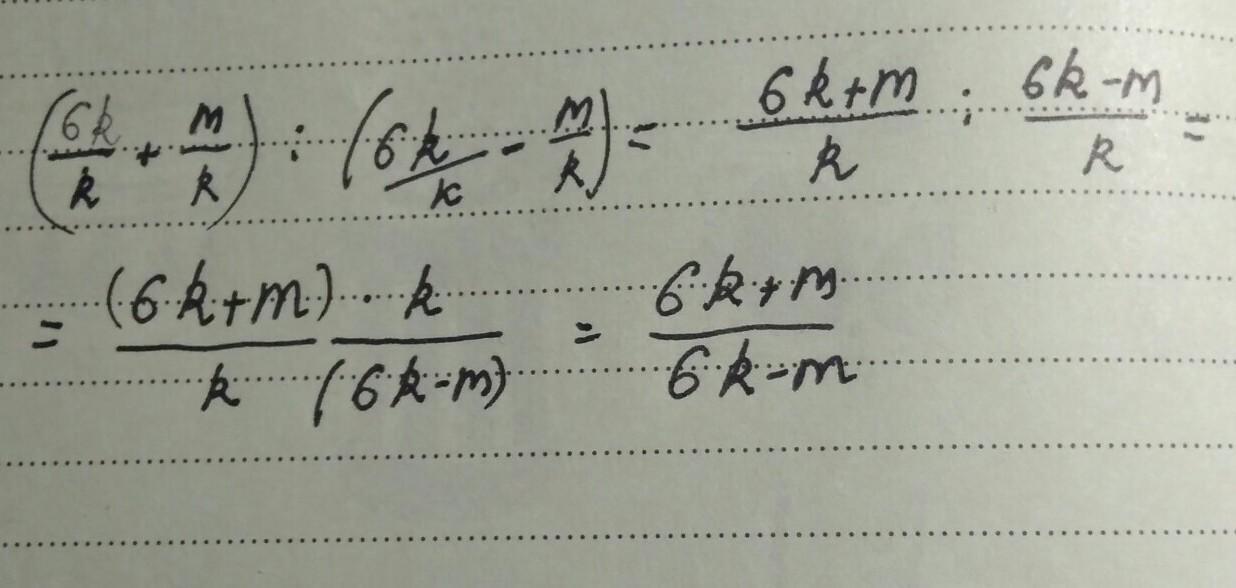 (6k/k + m/k) : (6k/k - m/k) = (6k+m)/k : (6k-m)/k =
= (6k+m)/k · k/(6k-m) = (6k+m)/(6k-m)